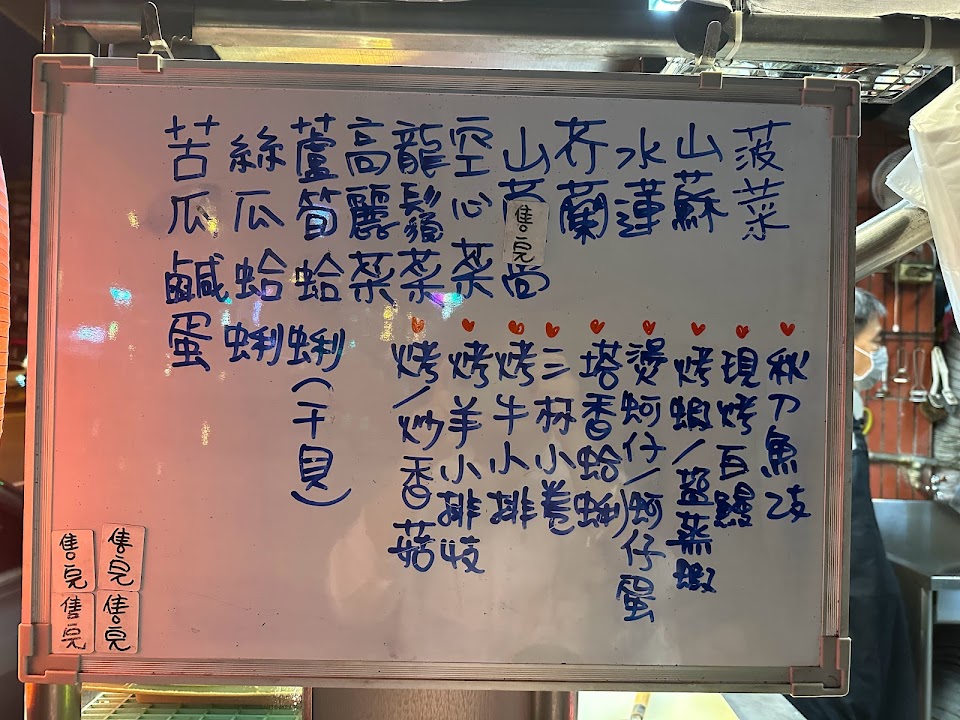 菠菜
山蘇
水蓮
芥蘭
山茼
售完
空心菜
龍鬚菜
高麗菜
蘆筍蛤蜊(干貝)
絲瓜蛤蜊
苦瓜鹹蛋
秋刀魚
現烤百鰻
烤蝦/蒸蝦
燙蚵仔/蚵仔蛋
塔香蛤蜊
三杯小卷
烤牛小排
烤羊小排
烤/炒香菇
售完
售完
售完
售完